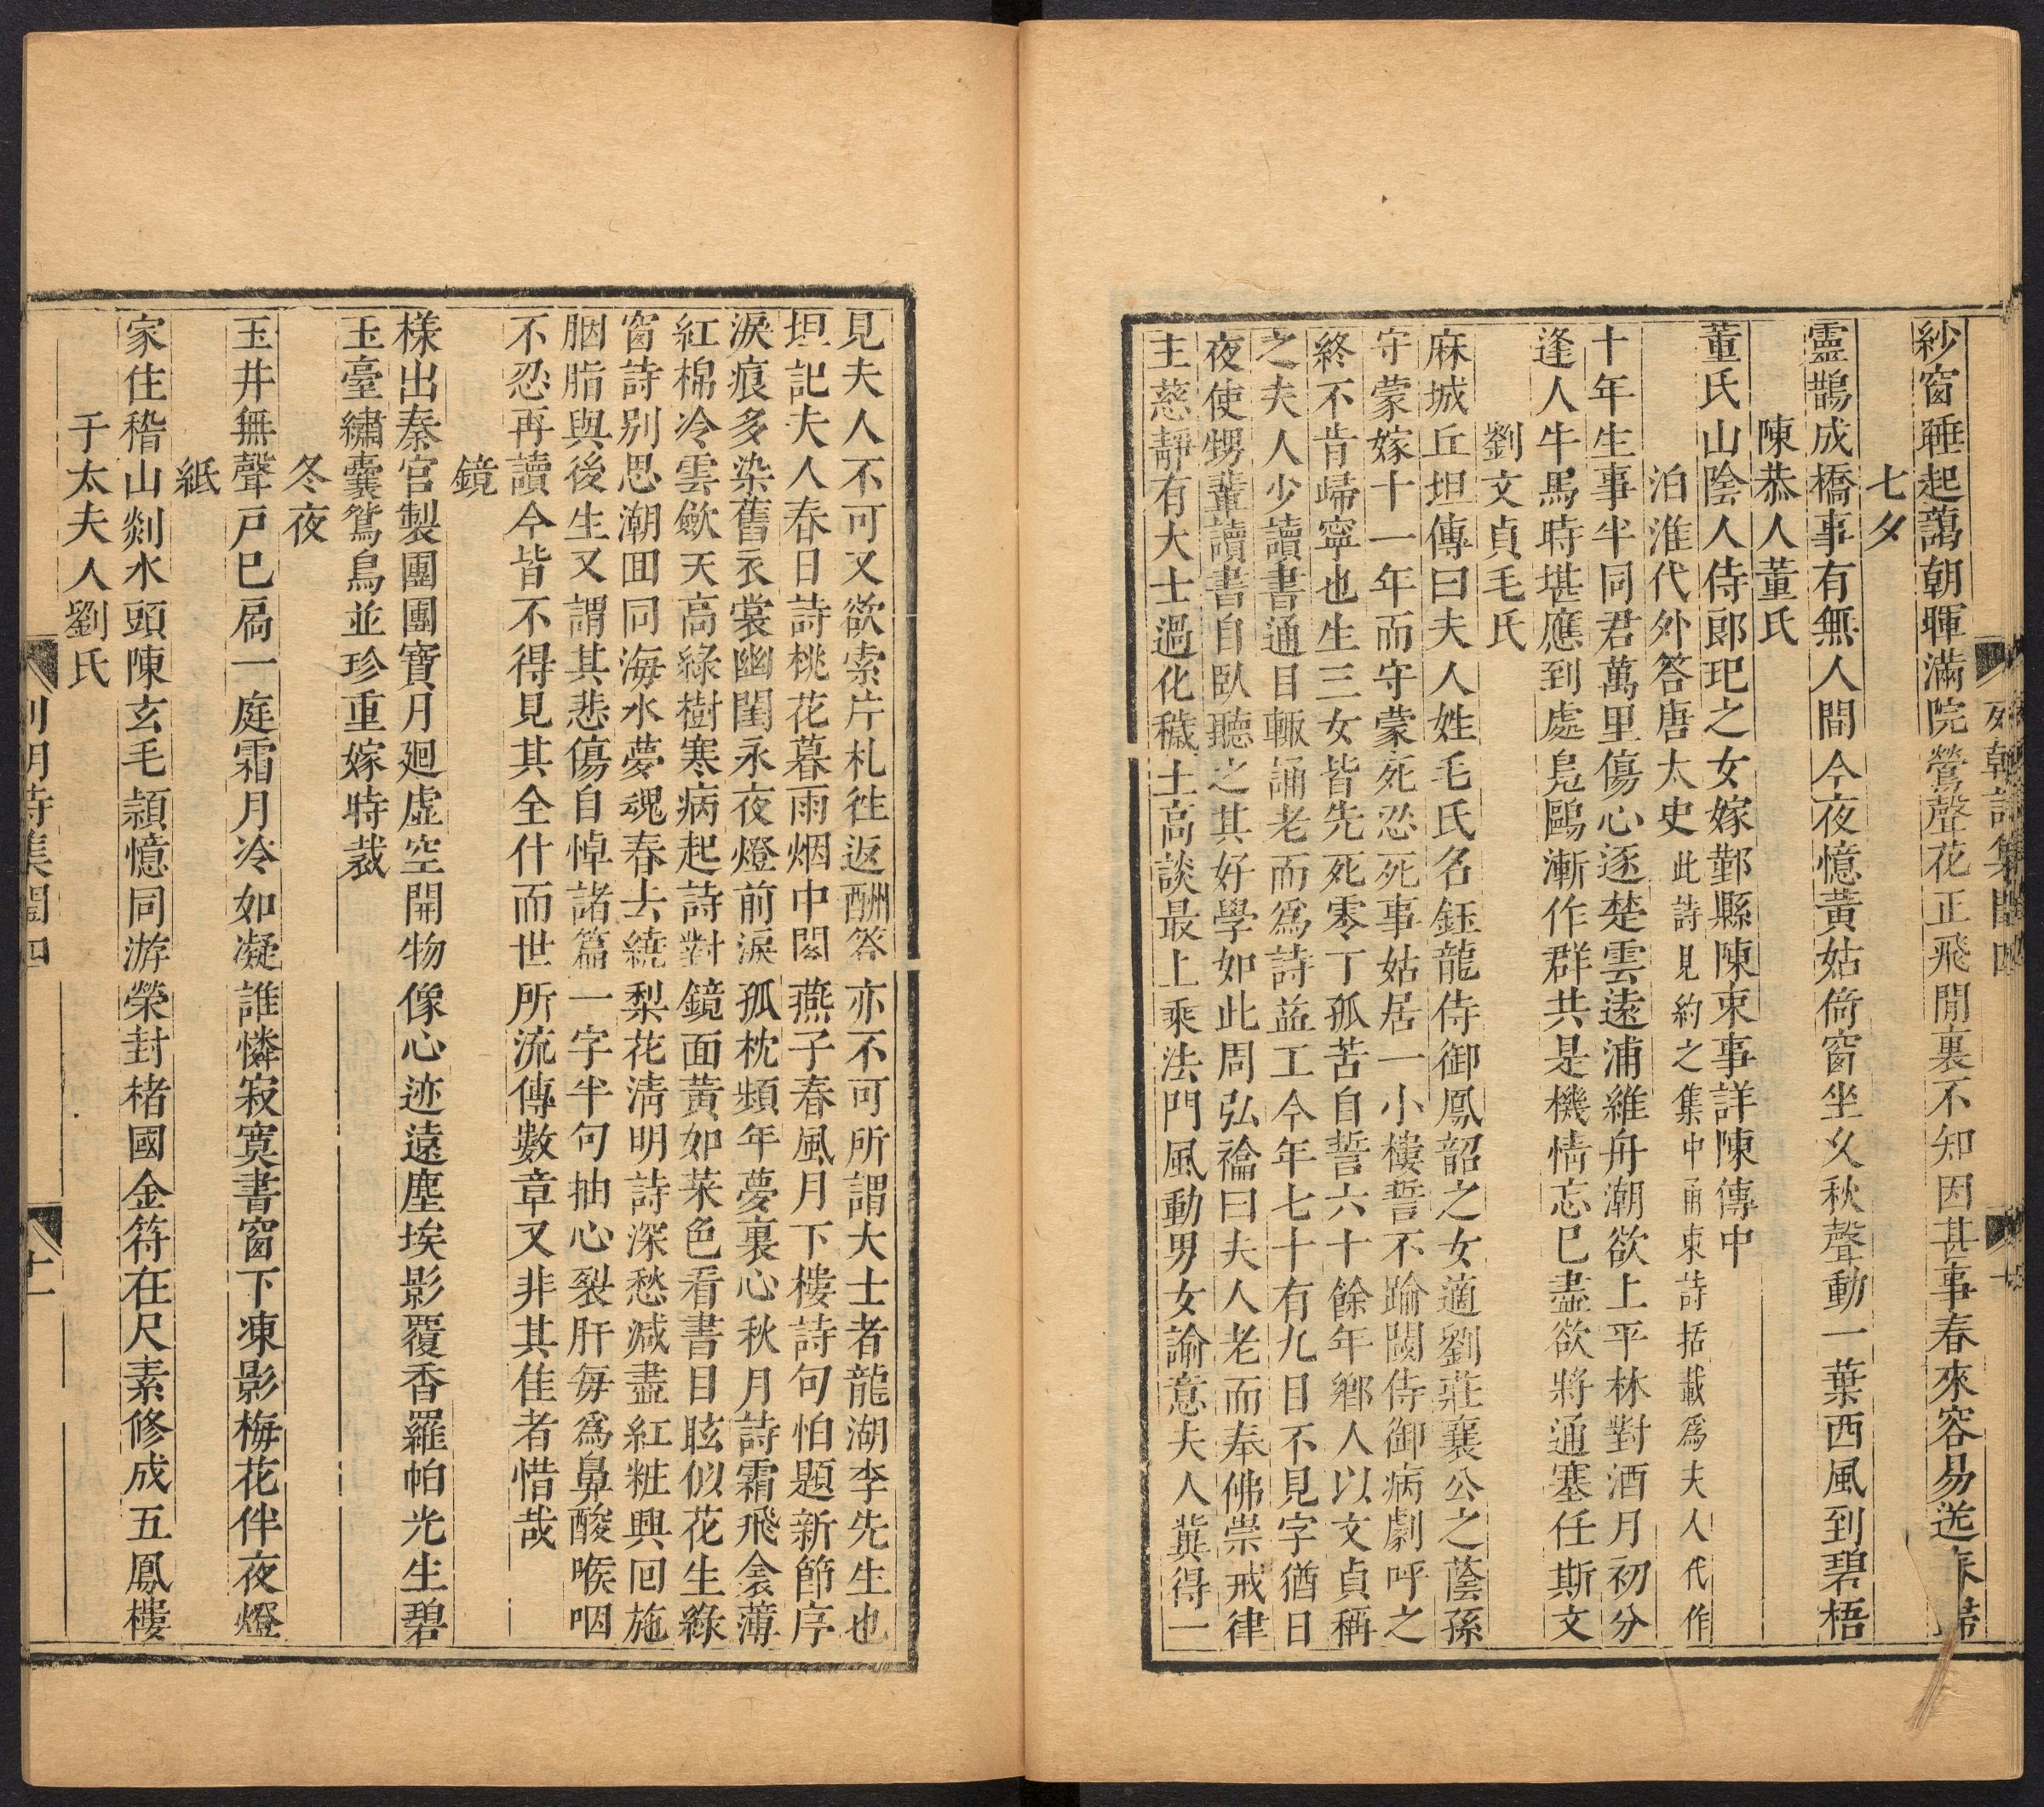 紗窗睡起藹朝暉滿院鶯聲花正飛閒裏不知因甚事春來容易送春歸
七夕
靈鵲成橋事有無人間今夜憶黃姑倚窗坐久秋聲動一葉西風到碧梧
陳恭人董氏
董氏山陰人侍郎玘之女嫁鄞縣陳束事詳陳傳中
泊淮代外答唐太史此詩見約之集中甬東詩括載爲夫人代作
十年生事半同君萬里傷心逐楚雲遠浦維舟潮欲上平林對酒月初分
逢人牛馬時堪應到處鳧鷗漸作群共是機情忘巳盡欲將通塞任斯文
劉文貞毛氏
麻城丘坦傳曰夫人姓毛氏名鈺龍侍御鳳韶之女適劉莊襄公之蔭孫
守蒙嫁十一年而守蒙死忍死事姑居一小樓誓不踰閾侍御病劇呼之
終不肯歸寧也生三女皆先死零丁孤苦自誓六十餘年鄉人以文貞稱
之夫人少讀書通目輙誦老而爲詩益工今年七十有九目不見字猶日
夜使甥輩讀書自臥聽之其好學如此周弘禴曰夫人老而奉佛崇戒律
主慈靜有大士過化穢土高談最上乘法門風動男女諭意夫人冀得一
見夫人不可又欲索片札往返酬答亦不可所謂大士者龍湖李先生也
坦記夫人春日詩桃花暮雨烟中閣燕子春風月下樓詩句怕題新節序
淚痕多染舊衣裳幽閨永夜燈前淚孤枕頻年夢裏心秋月詩霜飛衾薄
紅棉冷雲斂天高綠樹寒病起詩對鏡面黃如菜色看書目眩似花生綠
窗詩别思潮回同海水夢魂春去繞梨花清明詩深愁減盡紅粧興回施
胭脂與後生又謂其悲傷自悼諸篇一字半句抽心裂肝每爲鼻酸喉咽
不忍再讀今皆不得見其全什而世所流傳數章又非其佳者惜哉
鏡
樣出秦宮製團團寶月廻虛空開物像心迹遠塵埃影覆香羅帕光生碧
玉臺繡囊鴛鳥並珍重嫁時裁
冬夜
玉井無聲戸巳扃一庭霜月冷如凝誰憐寂寞書窗下凍影梅花伴夜燈
紙
家住稽山剡水頭陳玄毛穎憶同游榮封楮國金符在尺素修成五鳳樓
于太夫人劉氏
列朝詩集閏四
十一